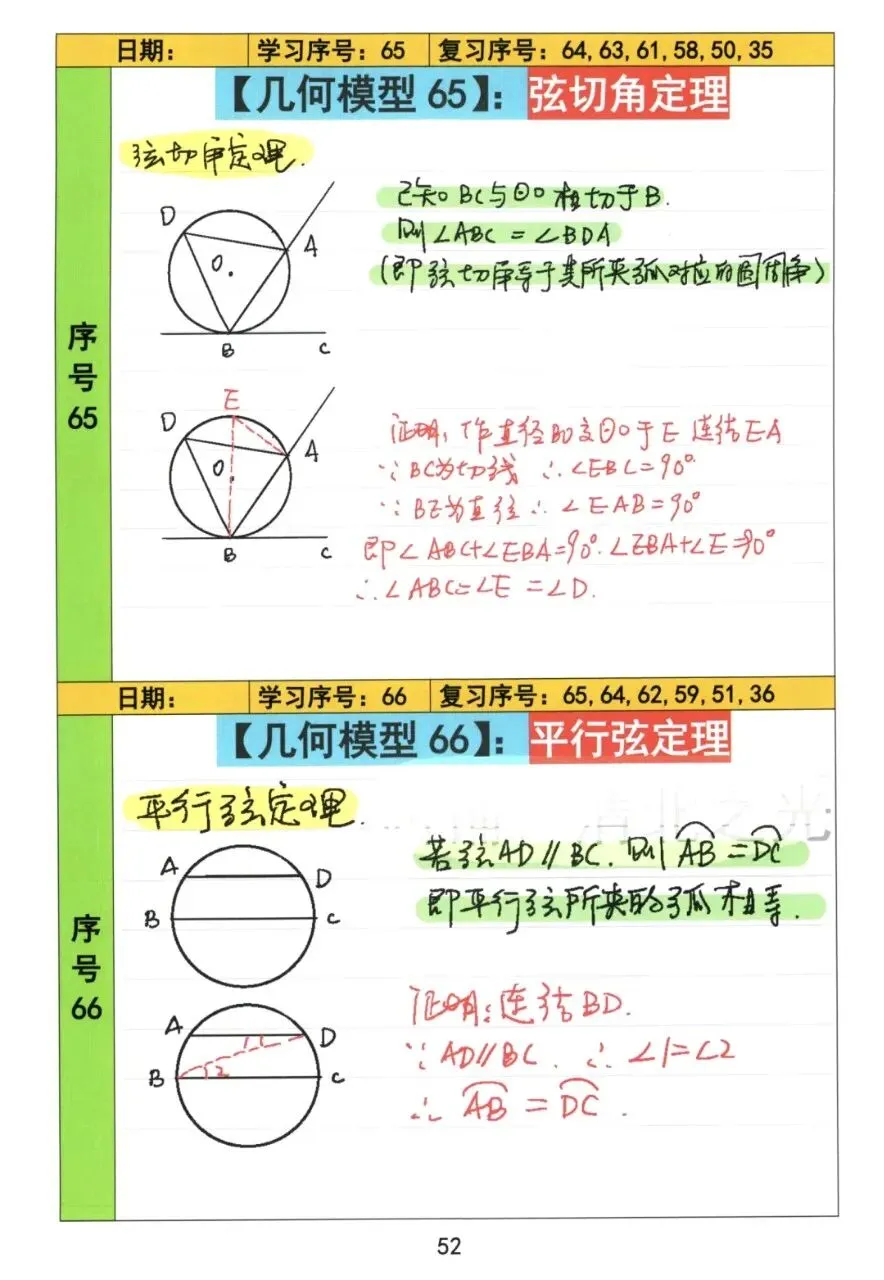 日期： 学习序号：65 复习序号：64,63,61,58,50,35
【几何模型 65】：弦切角定理
序号65
弦切角定理.
已知 BC与⊙O 相切于B.
则∠ABC = ∠BDA
(即弦切角等于其所夹弧对应的圆周角)
D
A
O
B
C
E
D
A
O
B
C
证明：作直径BO交⊙O于E 连结EA
∵BC为切线 ∴∠EBC=90°
∵BE为直径∴∠EAB=90°
即∠ABC+∠EBA=90°.∠EBA+∠E=90°
∴∠ABC=∠E=∠D.
日期： 学习序号：66 复习序号：65,64,62,59,51,36
【几何模型 66】：平行弦定理
序号66
平行弦定理.
清北之光
A
D
B
C
若弦AD∥BC.则 AB = DC
即平行弦所夹的弧相等.
A
D
1
B
2
C
证明：连结BD.
∵AD∥BC. ∴∠1=∠2
∴ AB = DC.
52